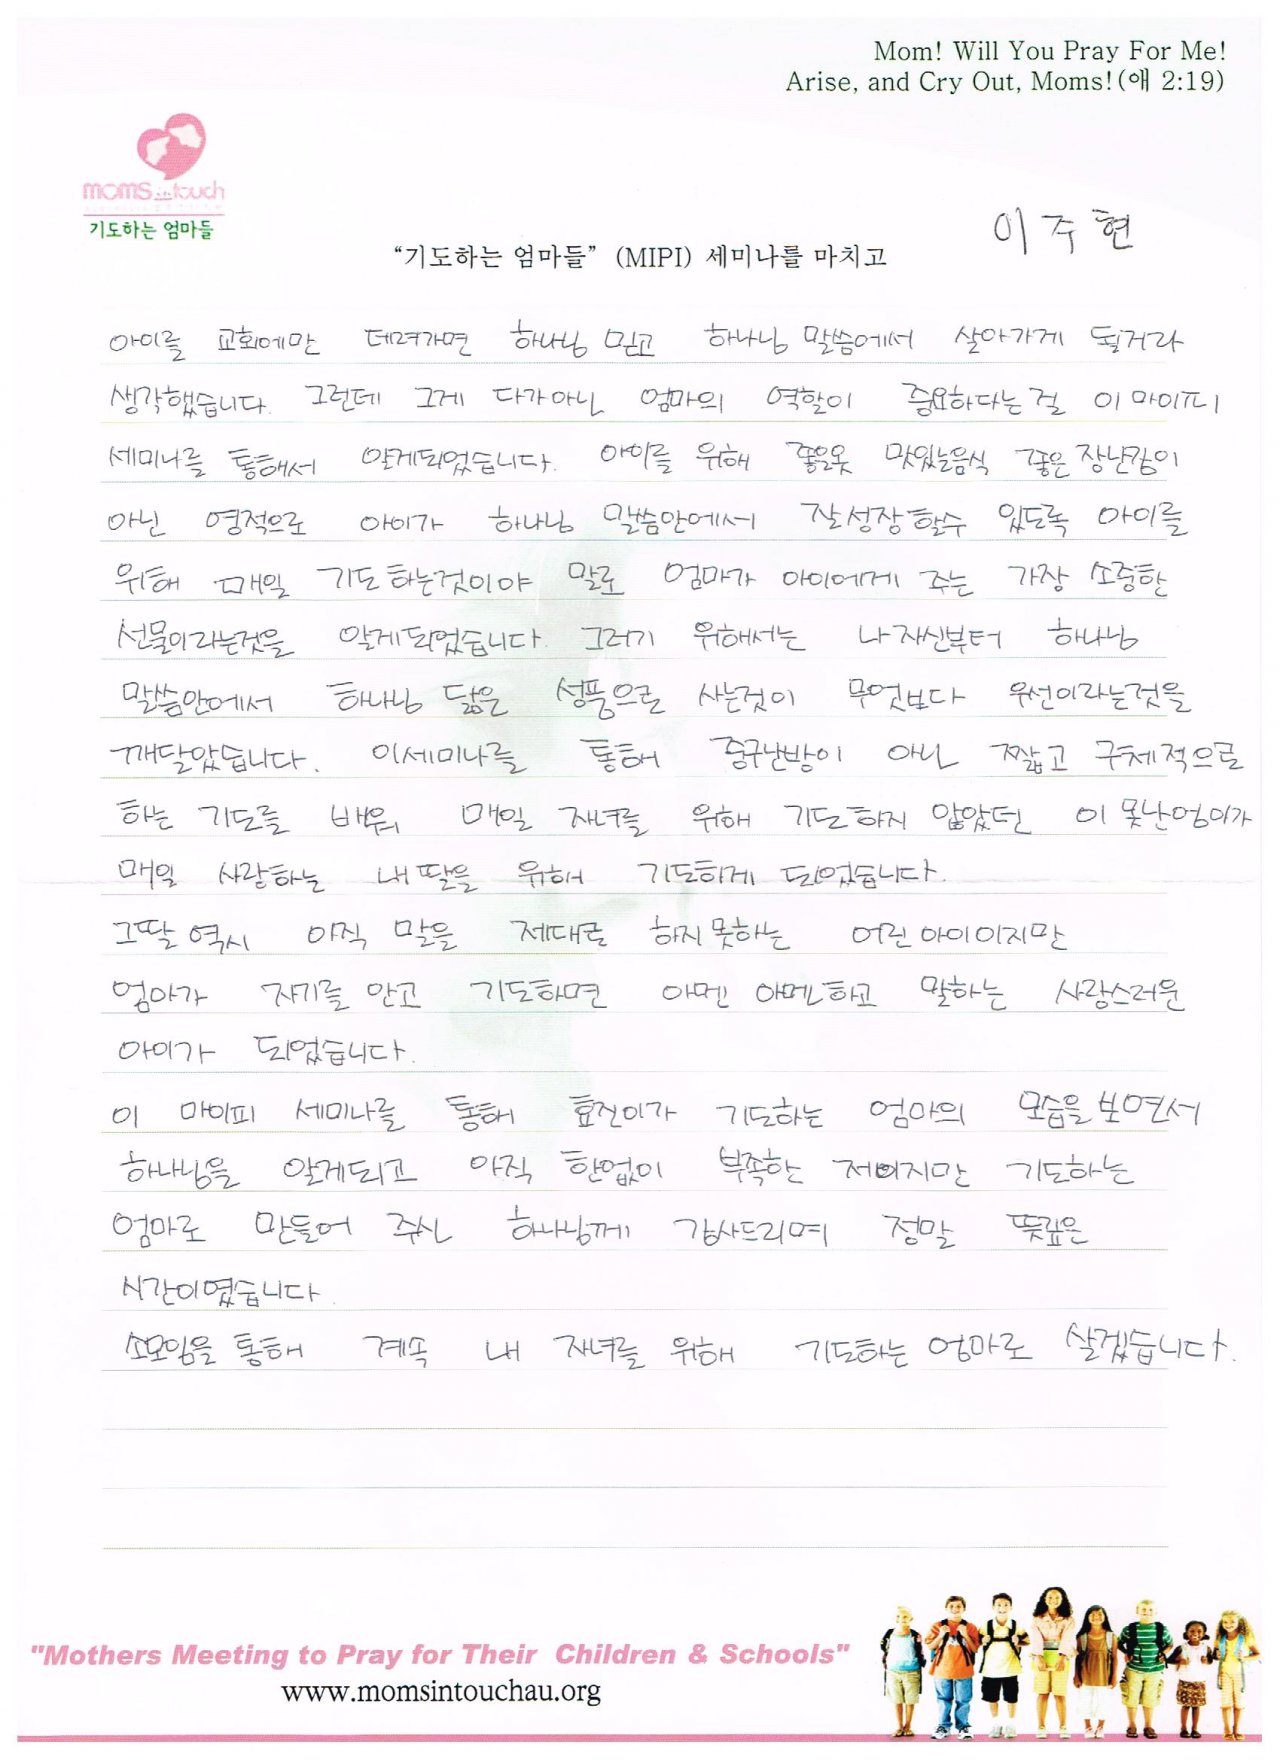 Mom! Will You Pray For Me!
Arise, and Cry Out, Moms!(애 2:19)
moms in touch
기도하는 엄마들
이주현
“기도하는 엄마들” (MIPI) 세미나를 마치고
아이를 교회에만 데려가면 하나님 믿고 하나님 말씀에서 살아가게 될거라
생각했습니다. 그런데 그게 다가아닌 엄마의 역할이 중요하다는걸 이 마이피
세미나를 통해서 알게되었습니다. 아이를 위해 좋은옷 맛있는음식 좋은 장난감이
아닌 영적으로 아이가 하나님 말씀안에서 잘성장할수 있도록 아이를
위해 매일 기도하는것이야 말로 엄마가 아이에게 주는 가장 소중한
선물이라는것을 알게되었습니다. 그러기 위해서는 나자신부터 하나님
말씀안에서 하나님 닮은 성품으로 사는것이 무엇보다 우선이라는것을
깨달았습니다. 이세미나를 통해 중구난방이 아닌 짧고 구체적으로
하는 기도를 배워 매일 자녀를 위해 기도하지 않았던 이 못난엄마가
매일 사랑하는 내딸을 위해 기도하게 되었습니다.
그딸 역시 아직 말을 제대로 하지못하는 어린아이이지만
엄마가 자기를 안고 기도하면 아멘 아멘하고 말하는 사랑스러운
아이가 되었습니다.
이 마이피 세미나를 통해 효진이가 기도하는 엄마의 모습을보면서
하나님을 알게되고 아직 한없이 부족한 저이지만 기도하는
엄마로 만들어 주신 하나님께 감사드리며 정말 뜻깊은
시간이였습니다.
소모임을 통해 계속 내 자녀를 위해 기도하는 엄마로 살겠습니다.
"Mothers Meeting to Pray for Their Children & Schools"
www.momsintouchau.org